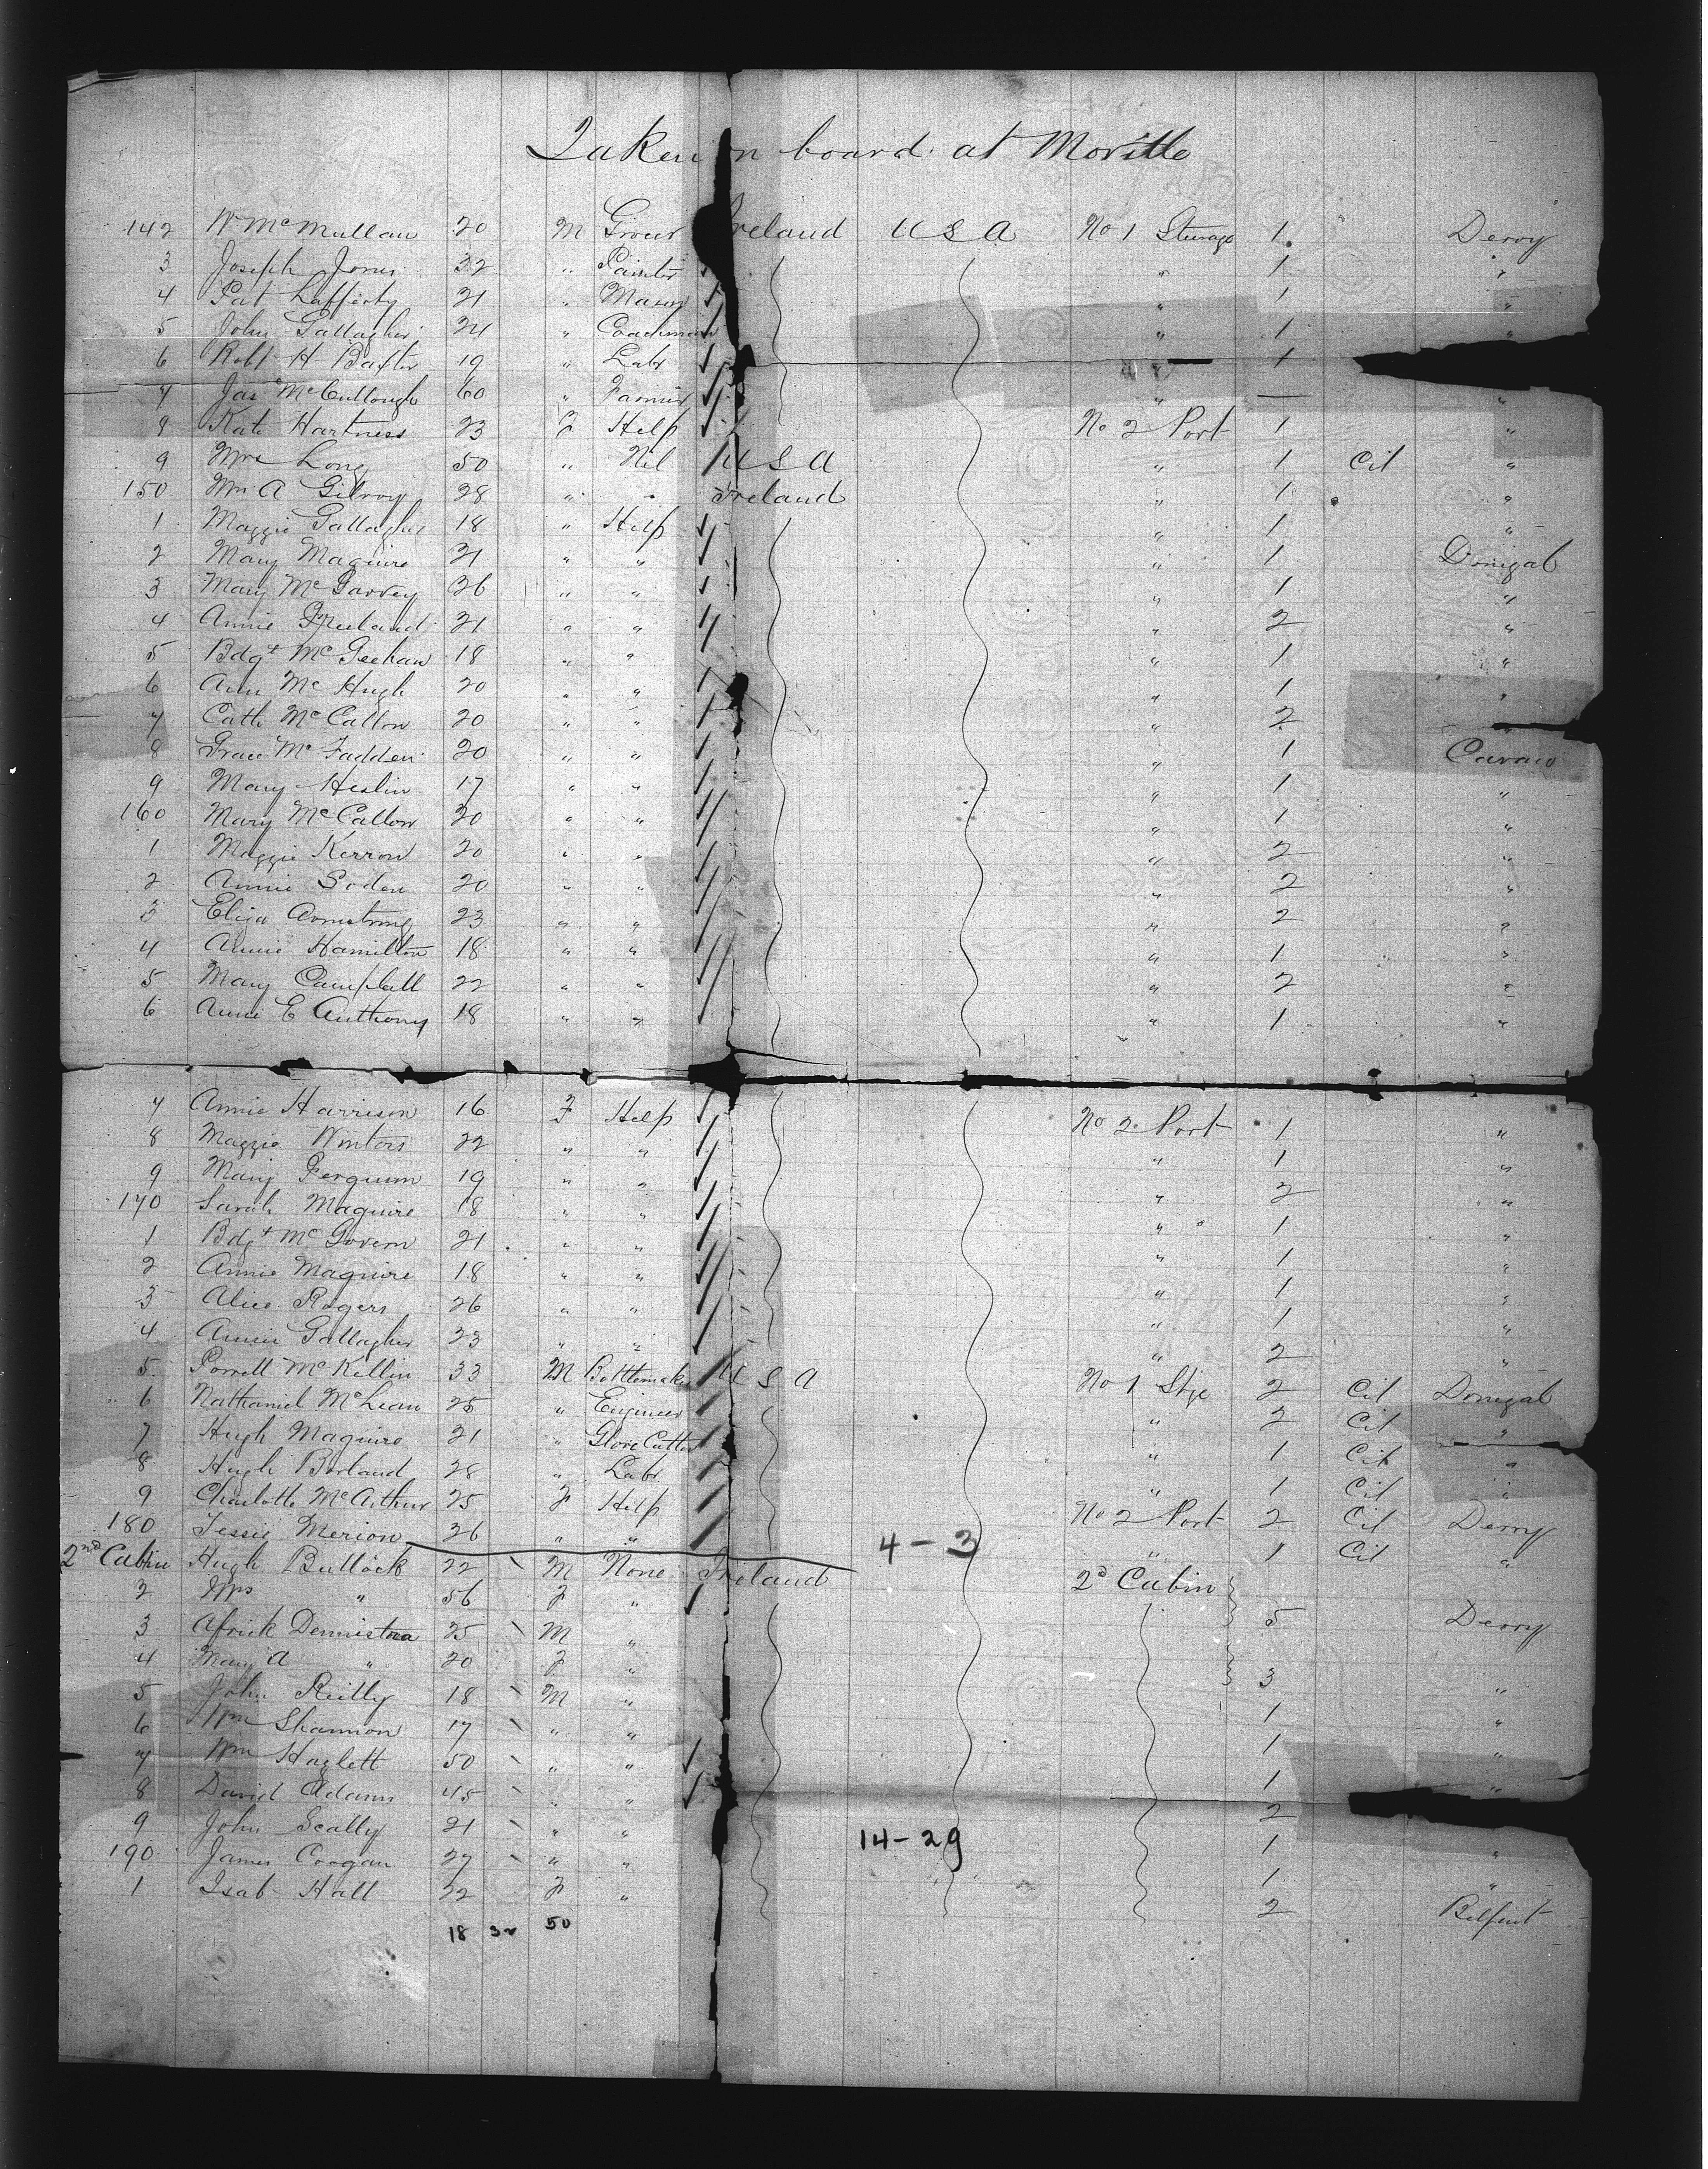 Taken on board at Moville
142 Wm McMullan 20 M Grocer Ireland USA No 1 Steerage 1 Derry
3 Joseph Jones 32 " Painter " 1 "
4 Pat Lafferty 21 " Mason " 1 "
5 John Gallagher 24 " Coachman " 1 "
6 Robt H Baxter 19 " Labr " 1
7 Jas McCullough 60 " Farmer " — "
8 Kate Hartness 23 F Help No 2 Port 1 "
9 Mrs Long 50 " Nil USA " 1 Cit "
150 Mrs A Gilroy 28 " " Ireland " 1 "
1 Maggie Gallagher 18 " Help " 1 "
2 Mary Maguire 21 " " " 1 Donegal
3 Mary McGarvey 26 " " " 1 "
4 Annie Freeland 21 " " " 2 "
5 Bdgt McGeehan 18 " " " 1 "
6 Ann McHugh 20 " " " 1 "
7 Cath McCallon 20 " " " 2
8 Grace McFadden 20 " " " 1 Cavan
9 Mary Heslin 17 " " " 1 "
160 Mary McCallon 20 " " " 1 "
1 Maggie Kerron 20 " " " 2 "
2 Annie Soden 20 " " " 2 "
3 Eliza Armstrong 23 " " " 2 "
4 Annie Hamilton 18 " " " 1 "
5 Mary Campbell 22 " " " 2 "
6 Annie E Anthony 18 " " " 1 "
7 Annie Harrison 16 F Help No 2 Port 1 "
8 Maggie Winters 22 " " " 1 "
9 Mary Ferguson 19 " " " 2 "
170 Sarah Maguire 18 " " " 1 "
1 Bdgt McGovern 21 " " " 1 "
2 Annie Maguire 18 " " " 1 "
3 Alice Rogers 26 " " " 1 "
4 Annie Gallagher 23 " " " 2 "
5 McKillin 33 M Bottlemaker USA No 1 Stge 2 Cit Donegal
6 Nathaniel McLean 25 " Engineer " 2 Cit "
7 Hugh Maguire 21 " Glove Cutter " 1 Cit "
8 Hugh Borland 28 " Labr " 1 Cit "
9 Charlotte McArthur 25 F Help No 2 Port 2 Cit Derry
180 Jessie Merion 26 " " 4-3 " 1 Cit "
2nd Cabin Hugh Bullock 22 M None Ireland 2d Cabin
2 Mrs " 56 F " 5 Derry
3 Africk Dennistoun 25 M "
4 Mary A " 20 F " 3
5 John Reilly 18 M " 1 "
6 Wm Shannon 17 " " 1 "
7 Wm Hazlett 50 " " 1 "
8 David Adams 45 " " 2 "
9 John Scally 21 " " 14-29 1 "
190 James Coogan 27 " " 1 "
1 Isab Hall 22 F " 2 Belfast
18 32 50